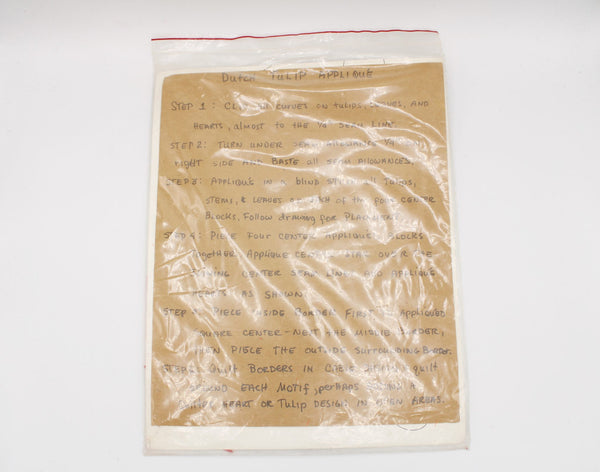 Dutch Tulip Appliqué
STEP 1: Clip all curves on tulips, leaves, and
hearts, almost to the 1/4" seam line.
STEP 2: Turn under seam allowance 1/4"
right side and baste all seam allowances.
STEP 3: Appliqué in a blind stitch all tulips,
stems, & leaves on each of the four center
blocks. Follow drawing for placement.
STEP 4: Piece four center appliqué blocks
together. Appliqué center over the
center seam lines and appliqué
hearts as shown.
STEP 5: Piece inside border first to appliqued
square center - next the middle border,
then piece the outside surrounding border.
STEP 6: Quilt borders in cable stitch, quilt
around each motif, perhaps adding a
heart or tulip design in open areas.